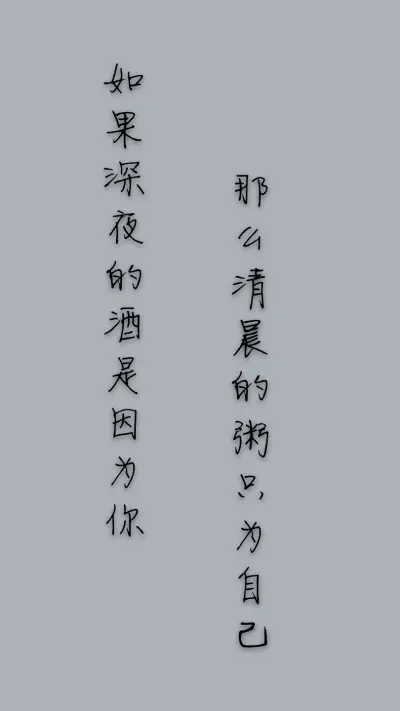 如果深夜的酒是因为你
那么清晨的粥只为自己